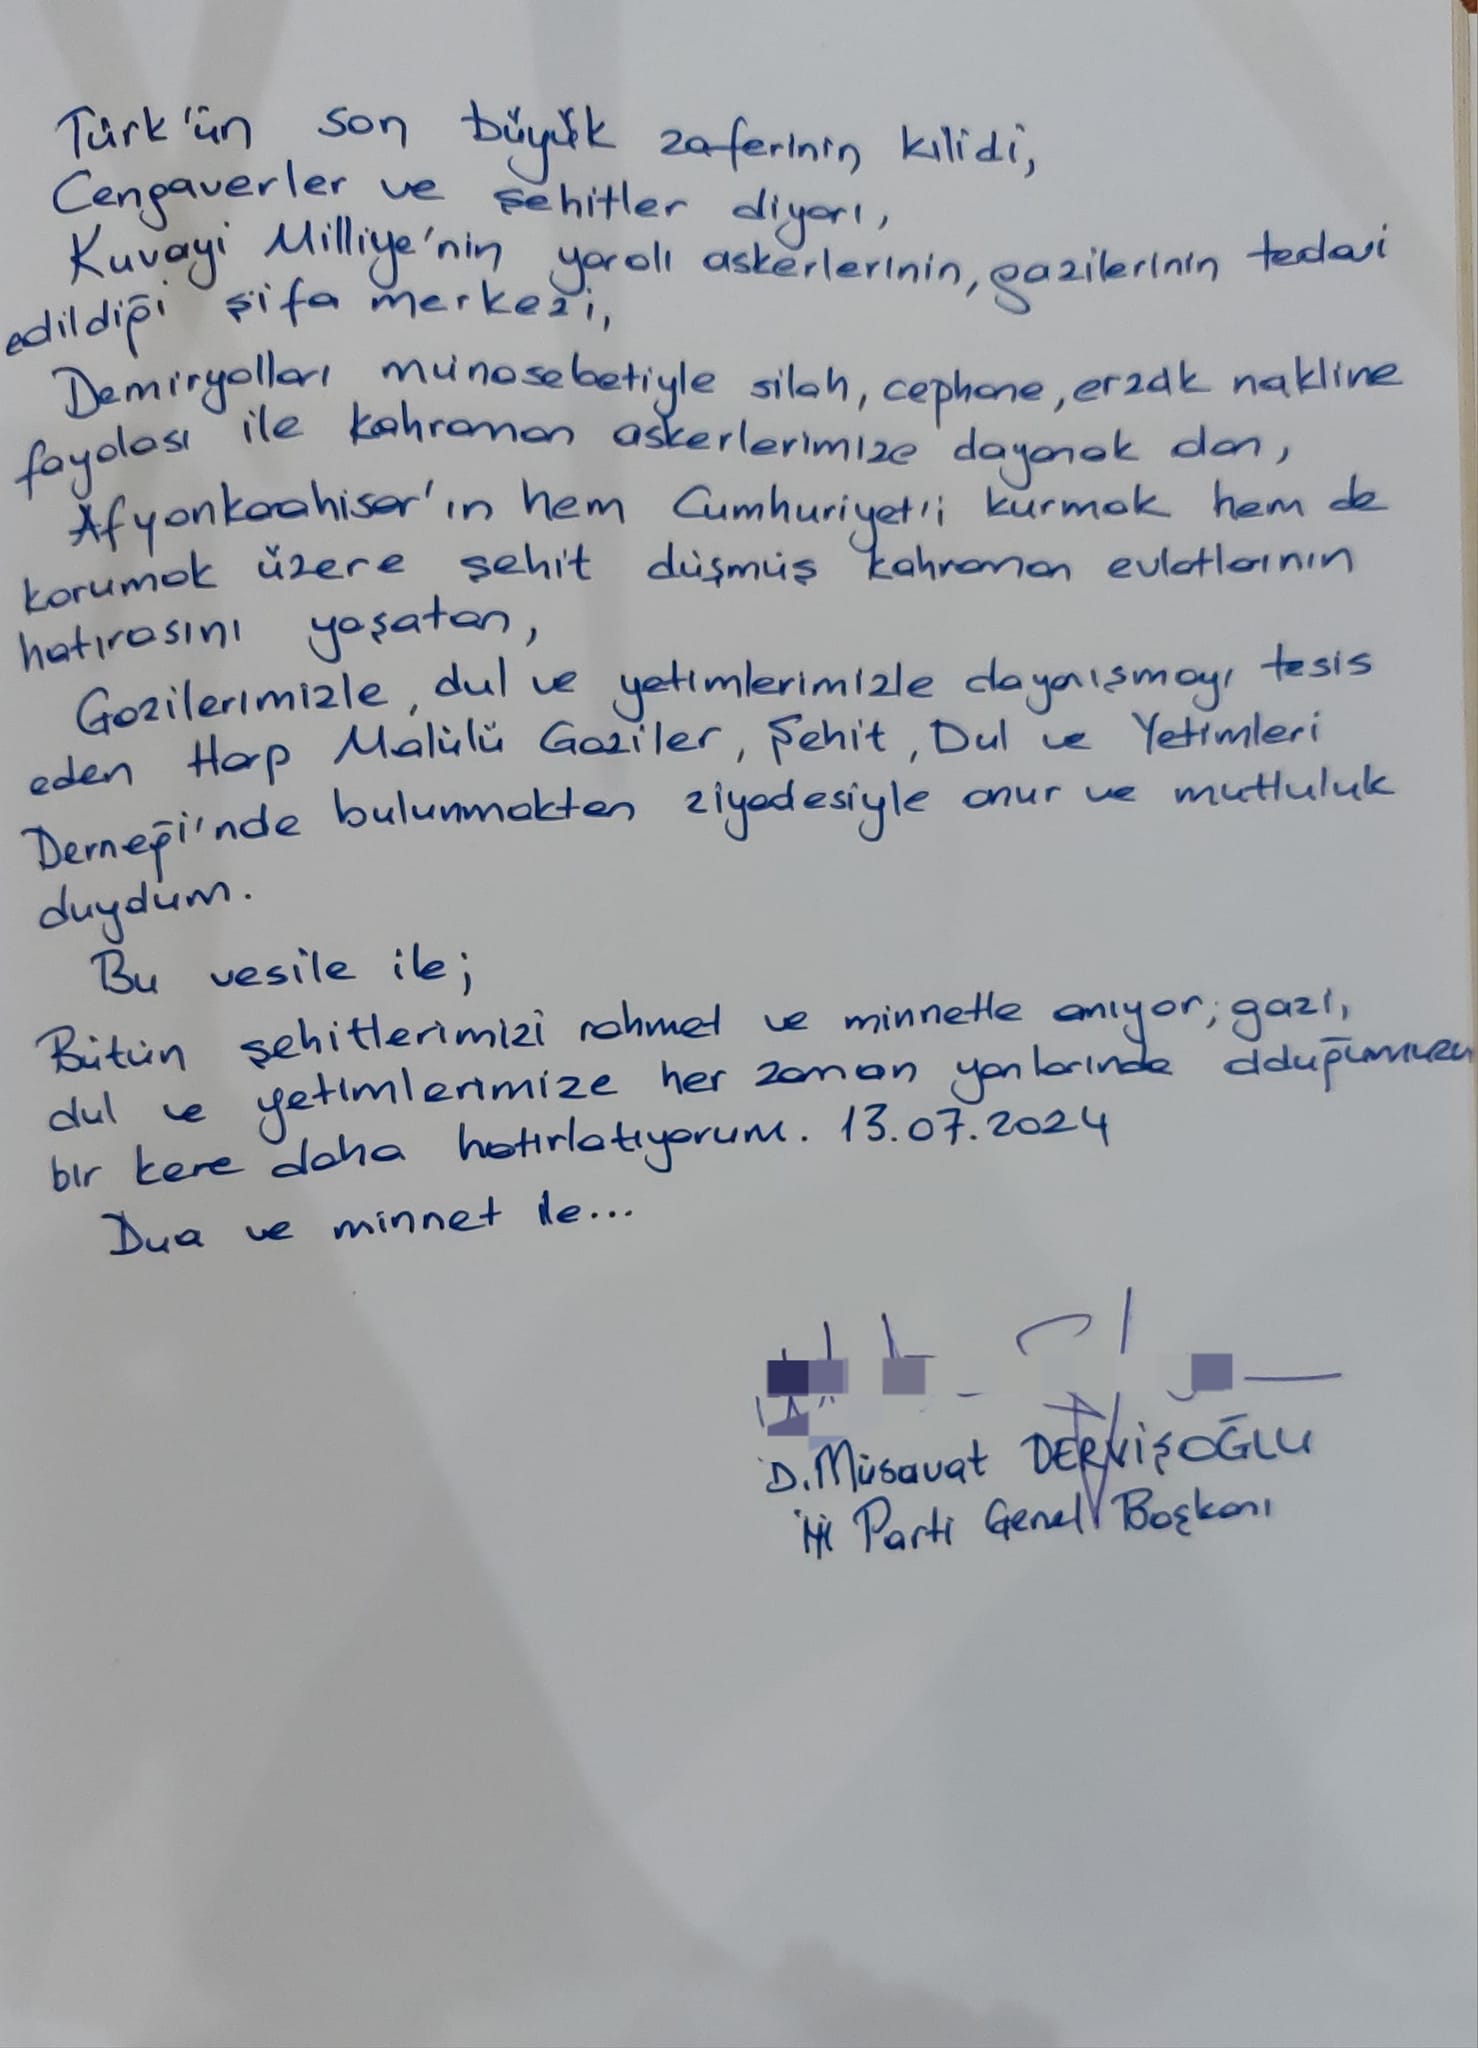 Türk'ün son büyük zaferinin kilidi,
Cengaverler ve şehitler diyarı,
Kuvayi Milliye'nin yaralı askerlerinin, gazilerinin tedavi
edildiği şifa merkezi,
Demiryolları münasebetiyle silah, cephane, erzak nakline
faydası ile kahraman askerlerimize dayanak olan,
Afyonkarahisar'ın hem Cumhuriyet'i kurmak hem de
korumak üzere şehit düşmüş kahraman evlatlarının
hatırasını yaşatan,
Gazilerimizle, dul ve yetimlerimizle dayanışmayı tesis
eden Harp Malülü Gaziler, Şehit, Dul ve Yetimleri
Derneği'nde bulunmaktan ziyadesiyle onur ve mutluluk
duydum.
Bu vesile ile;
Bütün şehitlerimizi rahmet ve minnetle anıyor; gazi,
dul ve yetimlerimize her zaman yanlarında olduğumuzu
bir kere daha hatırlatıyorum. 13.07.2024
Dua ve minnet ile...
D. Müsavat DERVİŞOĞLU
İYİ Parti Genel Başkanı